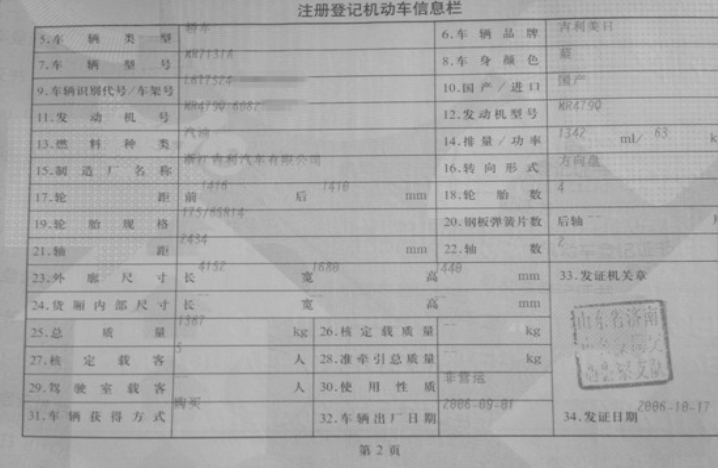 注册登记机动车信息栏
5.车辆类型 轿车 6.车辆品牌 吉利美日
7.车辆型号 MR7131A 8.车身颜色 蓝
9.车辆识别代号/车架号 L6T7524 10.国产/进口 国产
11.发动机号 MR479Q 6082 12.发动机型号 MR479Q
13.燃料种类 汽油 14.排量/功率 1342 ml/ 63 k
15.制造厂名称 浙江吉利汽车有限公司 16.转向形式 方向盘
17.轮距 前 1416 后 1410 mm 18.轮胎数 4
19.轮胎规格 175/65R14 20.钢板弹簧片数 后轴 --
21.轴距 2434 mm 22.轴数 2
23.外廓尺寸 长 4152 宽 1680 高 1440 mm 33.发证机关章
24.货厢内部尺寸 长 -- 宽 -- 高 -- mm
25.总质量 1387 kg 26.核定载质量 -- kg
27.核定载客 5 人 28.准牵引总质量 -- kg
29.驾驶室载客 -- 人 30.使用性质 非营运
31.车辆获得方式 购买 32.车辆出厂日期 2006-09-01 34.发证日期 2006-10-17
山东省济南
第2页